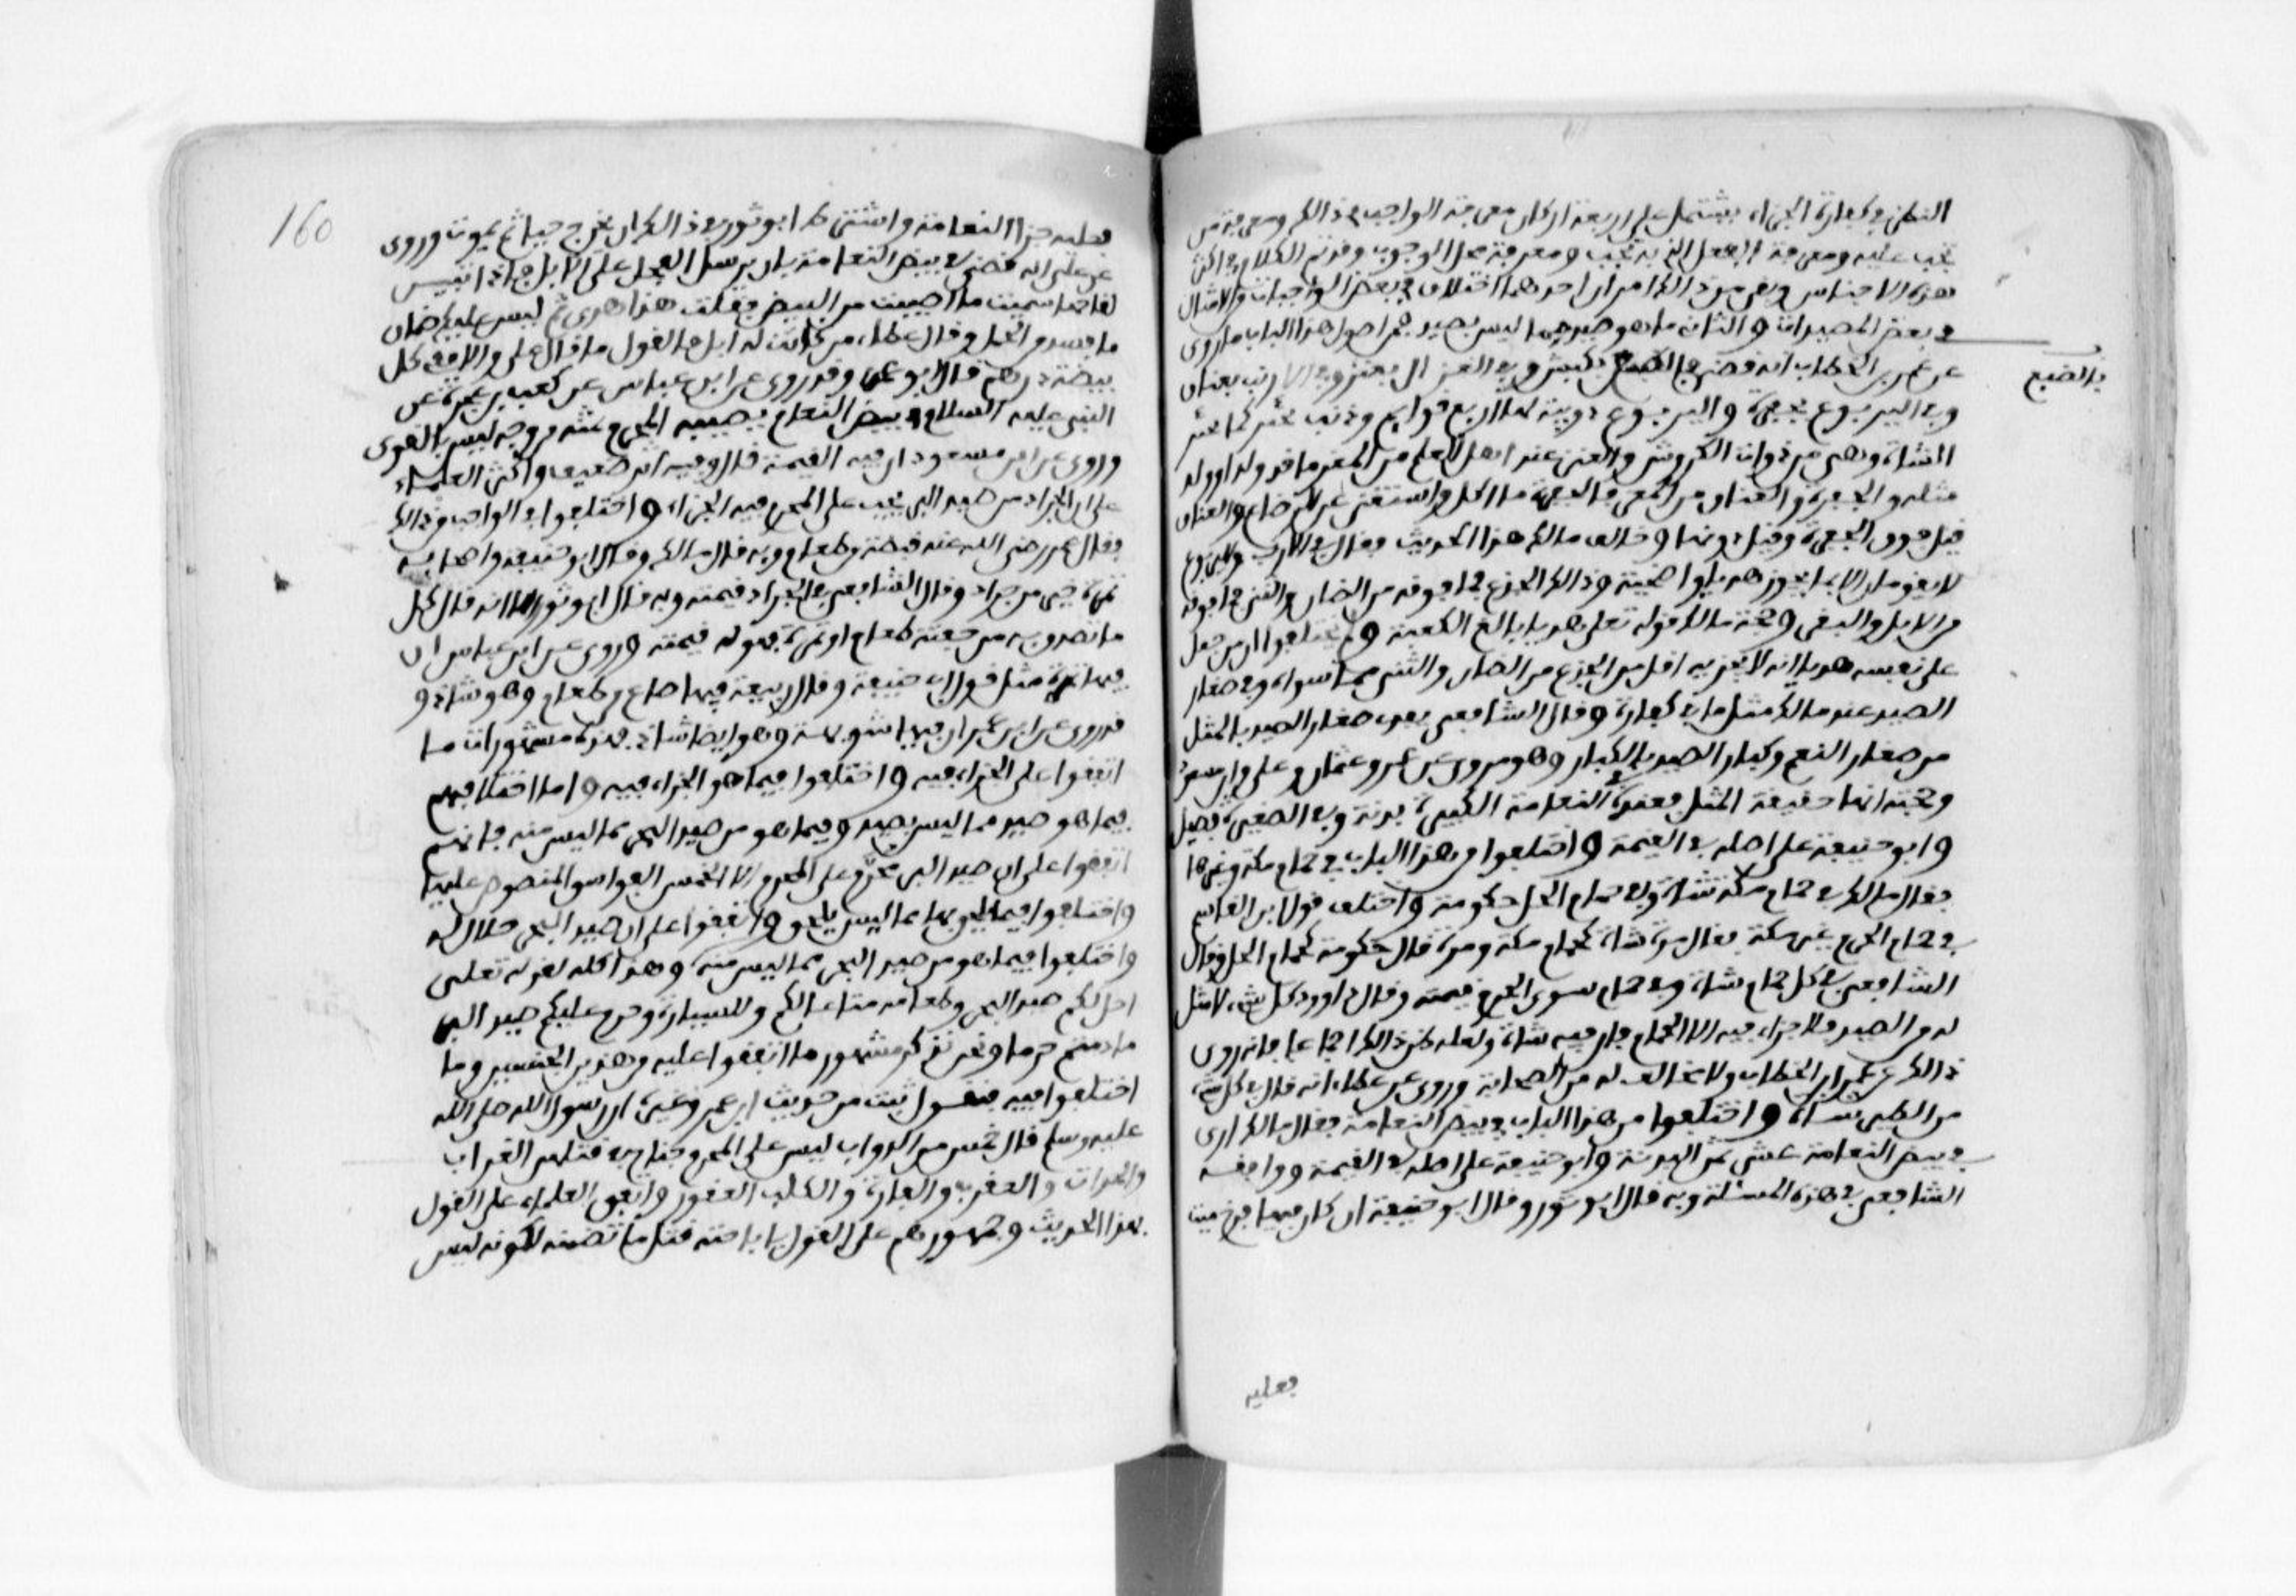 النظر في كفارة الجزاء يشتمل على اربعة اركان معرفة الواجب في ذالك ومعرفة من
تجب عليه ومعرفة الفعل الذي به تجب ومعرفة محل الوجوب وقد تقدم الكلام في اكثر
هذه الاجناس وبقي من ذالك امران احدهما اختلاف في بعض الواجبات والامثال
في بعض المصيدات والثاني ما هو صيد مما ليس بصيد فمن اصول هذا الباب ما روي
عن عمر بن الخطاب انه قضى في الضبع بكبش وفي الغزال بعنز وفي الارنب بعناق
في الضبع
وفي اليربوع بجفرة واليربوع دويبة لها اربع قوايم وذنب تجتر كما تجتر
الشاة وهي من ذوات الكروش والعنز عند اهل العلم من المعز ما قد ولد او ولد
مثله والجفرة والعناق من المعز فالجفرة ما اكل واستغنى عن الرضاع والعناق
قيل فوق الجفرة وقيل دونها وخالف مالك هذا الحديث فقال في الارنب واليربوع
لا يقومان الا بما يجوز هديا واضحية وذالك الجذع فما فوقه من الضان والثني فما فوقه
من الابل والبقر وحجة مالك قوله تعلى هديا بالغ الكعبة ولم يختلفوا ان من جعل
على نفسه هديا انه لا يجزيه اقل من الجذع من الضان والثني مما سواه وفي صغار
الصيد عند مالك مثل ما في كباره وقال الشافعي يفدى صغار الصيد بالمثل
من صغار النعم وكبار الصيد بالكبار وهو مروي عن عمر وعثمان وعلي وابن مسعود
وحجته انها حقيقة المثل فعنده في النعامة الكبيرة بدنة وفي الصغيرة فصيل
وابو حنيفة على اصله في القيمة واختلفوا من هذا الباب في حمام مكة وغيرها
فقال مالك في حمام مكة شاة وفي حمام الحل حكومة واختلف قول ابن القاسم
في حمام الحرم غير مكة فقال مرة شاة كحمام مكة ومرة قال حكومة كحمام الحل وقال
الشافعي في كل حمام شاة وفي حمام سوى الحرم قيمته وقال داوود كل شيء لا مثل
له من الصيد فلا جزاء فيه الا الحمام فان فيه شاة ولعله ظن ذالك اجماعا فانه روي
ذالك عن عمر بن الخطاب ولا مخالف له من الصحابة وروي عن عطاء انه قال في كل شيء
من الطير شاة واختلفوا من هذا الباب في بيض النعامة فقال مالك ارى
في بيض النعامة عشر ثمن البدنة وابو حنيفة على اصله في القيمة ووافقه
الشافعي في هذه المسئلة وبه قال ابو ثور وقال ابو حنيفة ان كان فيها فرخ ميت
فعليه
160
فعليه جزاء النعامة واشترط ابو ثور في ذالك ان يخرج حيا ثم يموت وروى
عن علي انه قضى في بيض النعامة بان يرسل الفحل على الابل فاذا تبين
لقاحها سميت ما اصبت من البيض فقلت هذا هدي ثم ليس عليك ضمان
ما فسد من الحمل وقال عطاء من كانت له ابل فالقول ما قال علي والا ففي كل
بيضة درهم قال ابو عمر وقد روي عن ابن عباس عن كعب بن عجرة عن
النبي عليه السلام في بيض النعام يصيبه المحرم ثمنه من وجه ليس بالقوي
وروي عن ابن مسعود ان فيه القيمة قال وفيه اثر ضعيف واكثر العلماء
على ان الجراد من صيد البر يجب على المحرم فيه الجزاء واختلفوا في الواجب من ذالك
فقال عمر رضي الله عنه قبضة من طعام وبه قال مالك وقال ابو حنيفة واصحابه
تمرة خير من جرادة وقال الشافعي في الجراد قيمته وبه قال ابو ثور الا انه قال كل
ما تصدق به من حفنة طعام او تمرة فهو له قيمة وروي عن ابن عباس ان
فيها تمرة مثل قول ابي حنيفة وقال ربيعة فيها صاع من طعام وهو شاذ و
قد روي عن ابن عمر ان فيها شويهة وهو ايضا شاذ فهذه مشهورات ما
اتفقوا على الجزاء فيه واختلفوا فيما هو الجزاء فيه واما اختلافهم
فيما هو صيد مما ليس بصيد وفيما هو من صيد البحر مما ليس منه فانهم
اتفقوا على ان صيد البر محرم على المحرم الا الخمس الفواسق المنصوص عليها
واختلفوا فيما يلحق بها مما ليس يلحق واتفقوا على ان صيد البحر حلال له
واختلفوا فيما هو من صيد البحر مما ليس منه وهذا كله لقوله تعلى
احل لكم صيد البحر وطعامه متاعا لكم وللسيارة وحرم عليكم صيد البر
ما دمتم حرما ونحن نذكر مشهور ما اتفقوا عليه من هذين الجنسين وما
اختلفوا فيه فنقول ثبت من حديث ابن عمر وغيره ان رسول الله صلى الله
عليه وسلم قال خمس من الدواب ليس على المحرم جناح في قتلهن الغراب
والحداة والعقرب والفارة والكلب العقور واتفق العلماء على القول
بهذا الحديث وجمهورهم على القول باباحة قتل ما تضمنه لكونه ليس